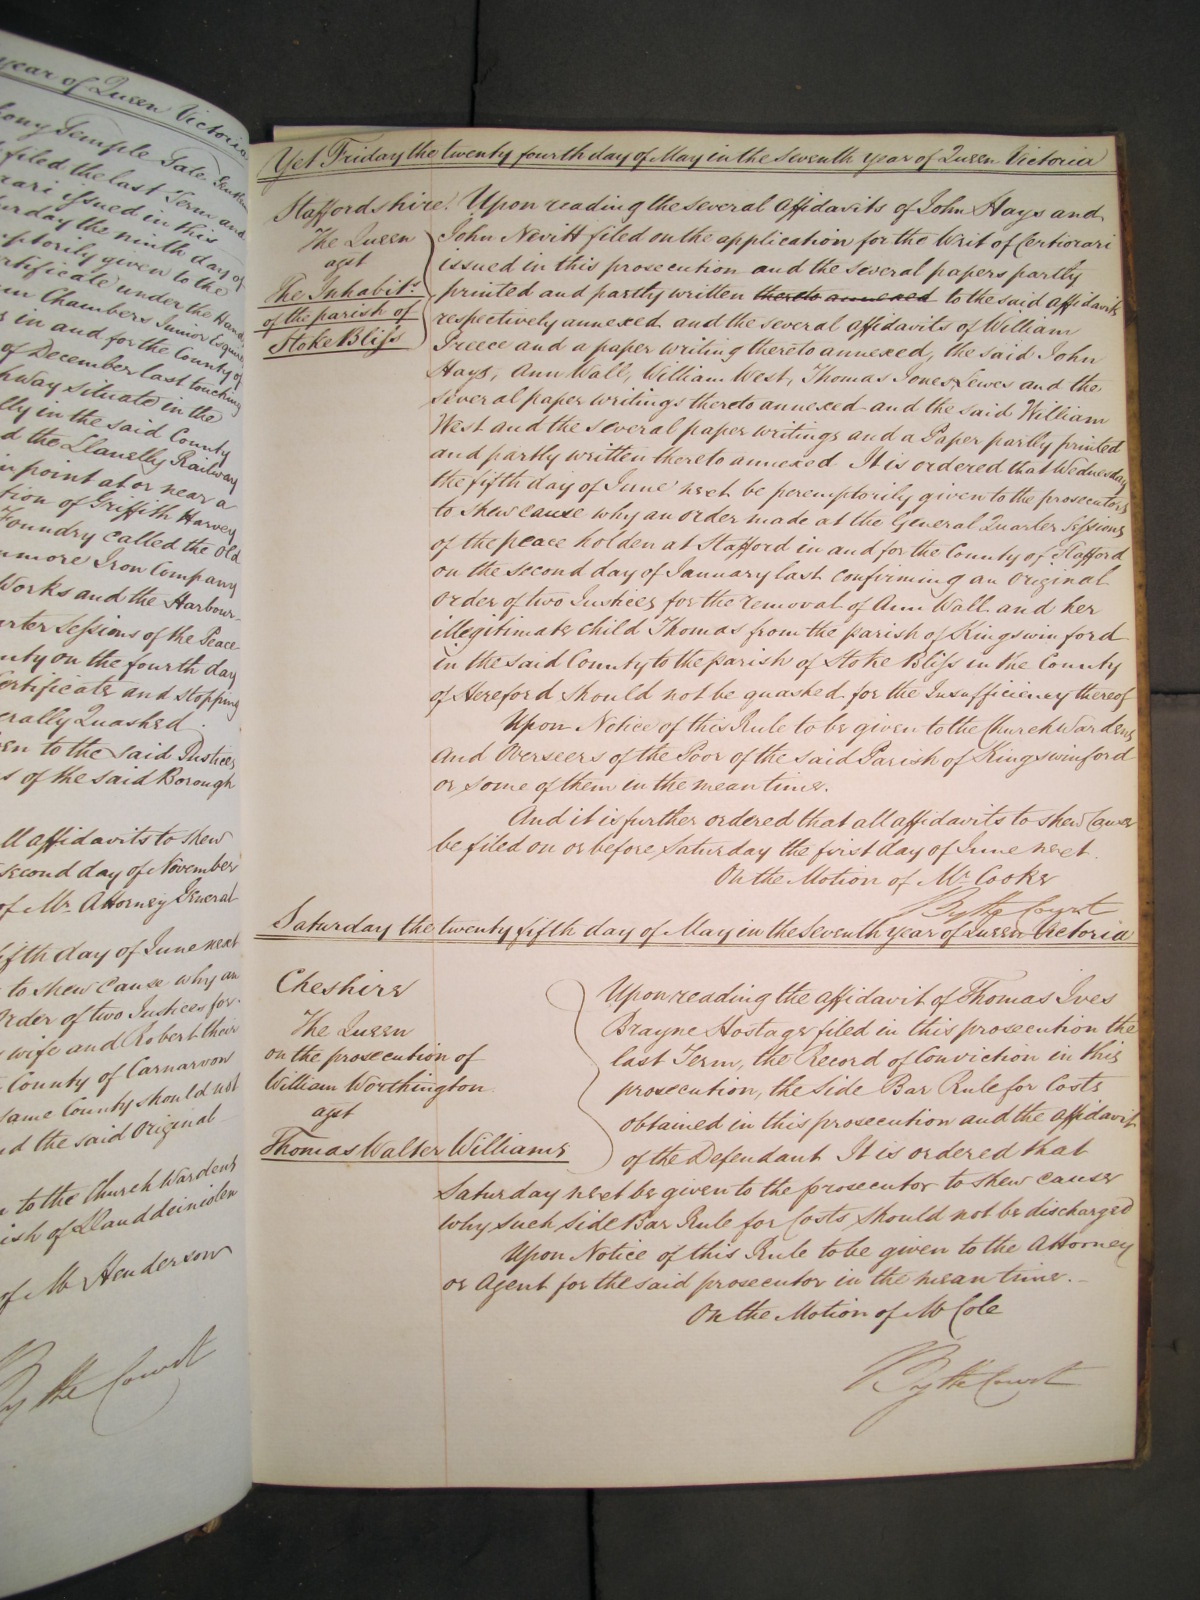 year of Queen Victoria
Temple Gale Gentleman
filed the last Term and
issued in this
Saturday the ninth day of
given to the
Certificate under the Hands
Chambers Junior Esquire
in and for the County of
of December last touching
situate in the
in the said County
the Llanelly Railway
point at or near a
of Griffith Harvey
Foundry called the Old
Iron Company
Works and the Harbour
Sessions of the Peace
on the fourth day
Certificate and Stopping
Quashed
to the said Justices
of the said Borough
all affidavits to shew
second day of November
of Mr. Attorney General
fifth day of June next
to shew cause why an
Order of two Justices for
wife and Robert their
County of Carnarvon
same County should not
and the said Original
to the Church Wardens
of Llanddeiniolen
of Mr Henderson
By the Court
Yet Friday the twenty fourth day of May in the Seventh year of Queen Victoria
Staffordshire. Upon reading the several affidavits of John Hays and
The Queen
agst
The Inhabits.
of the parish of
Stoke Bliss
John Nevitt filed on the application for the Writ of Certiorari
issued in this prosecution and the several papers partly
printed and partly written thereto annexed to the said affidavits
respectively annexed and the several affidavits of William
Greece and a paper writing thereto annexed, the said John
Hays, Ann Wall, William West, Thomas Jones Lewes and the
several paper writings thereto annexed and the said William
West and the several paper writings and a Paper partly printed
and partly written thereto annexed It is ordered that Wednesday
the fifth day of June next be peremptorily given to the prosecutors
to shew cause why an order made at the General Quarter Sessions
of the peace holden at Stafford in and for the County of Stafford
on the second day of January last confirming an original
Order of two Justices for the removal of Ann Wall and her
illegitimate child Thomas from the parish of Kingswinford
in the said County to the parish of Stoke Bliss in the County
of Hereford should not be quashed for the Insufficiency thereof
Upon Notice of this Rule to be given to the Church Wardens
and Overseers of the Poor of the said Parish of Kingswinford
or some of them in the mean time.
And it is further ordered that all affidavits to shew Cause
be filed on or before Saturday the first day of June next.
On the Motion of Mr. Cooke
By the Court
Saturday the twenty fifth day of May in the Seventh year of Queen Victoria
Cheshire
The Queen
on the prosecution of
William Worthington
agst
Thomas Walter Williams
Upon reading the affidavit of Thomas Ives
Brayne Hostage filed in this prosecution the
last Term, the Record of Conviction in this
prosecution, the Side Bar Rule for Costs
obtained in this prosecution and the affidavit
of the Defendant It is ordered that
Saturday next be given to the prosecutor to shew cause
why such side Bar Rule for Costs should not be discharged
Upon Notice of this Rule to be given to the Attorney
or Agent for the said prosecutor in the mean time.
On the Motion of Mr Cole
By the Court